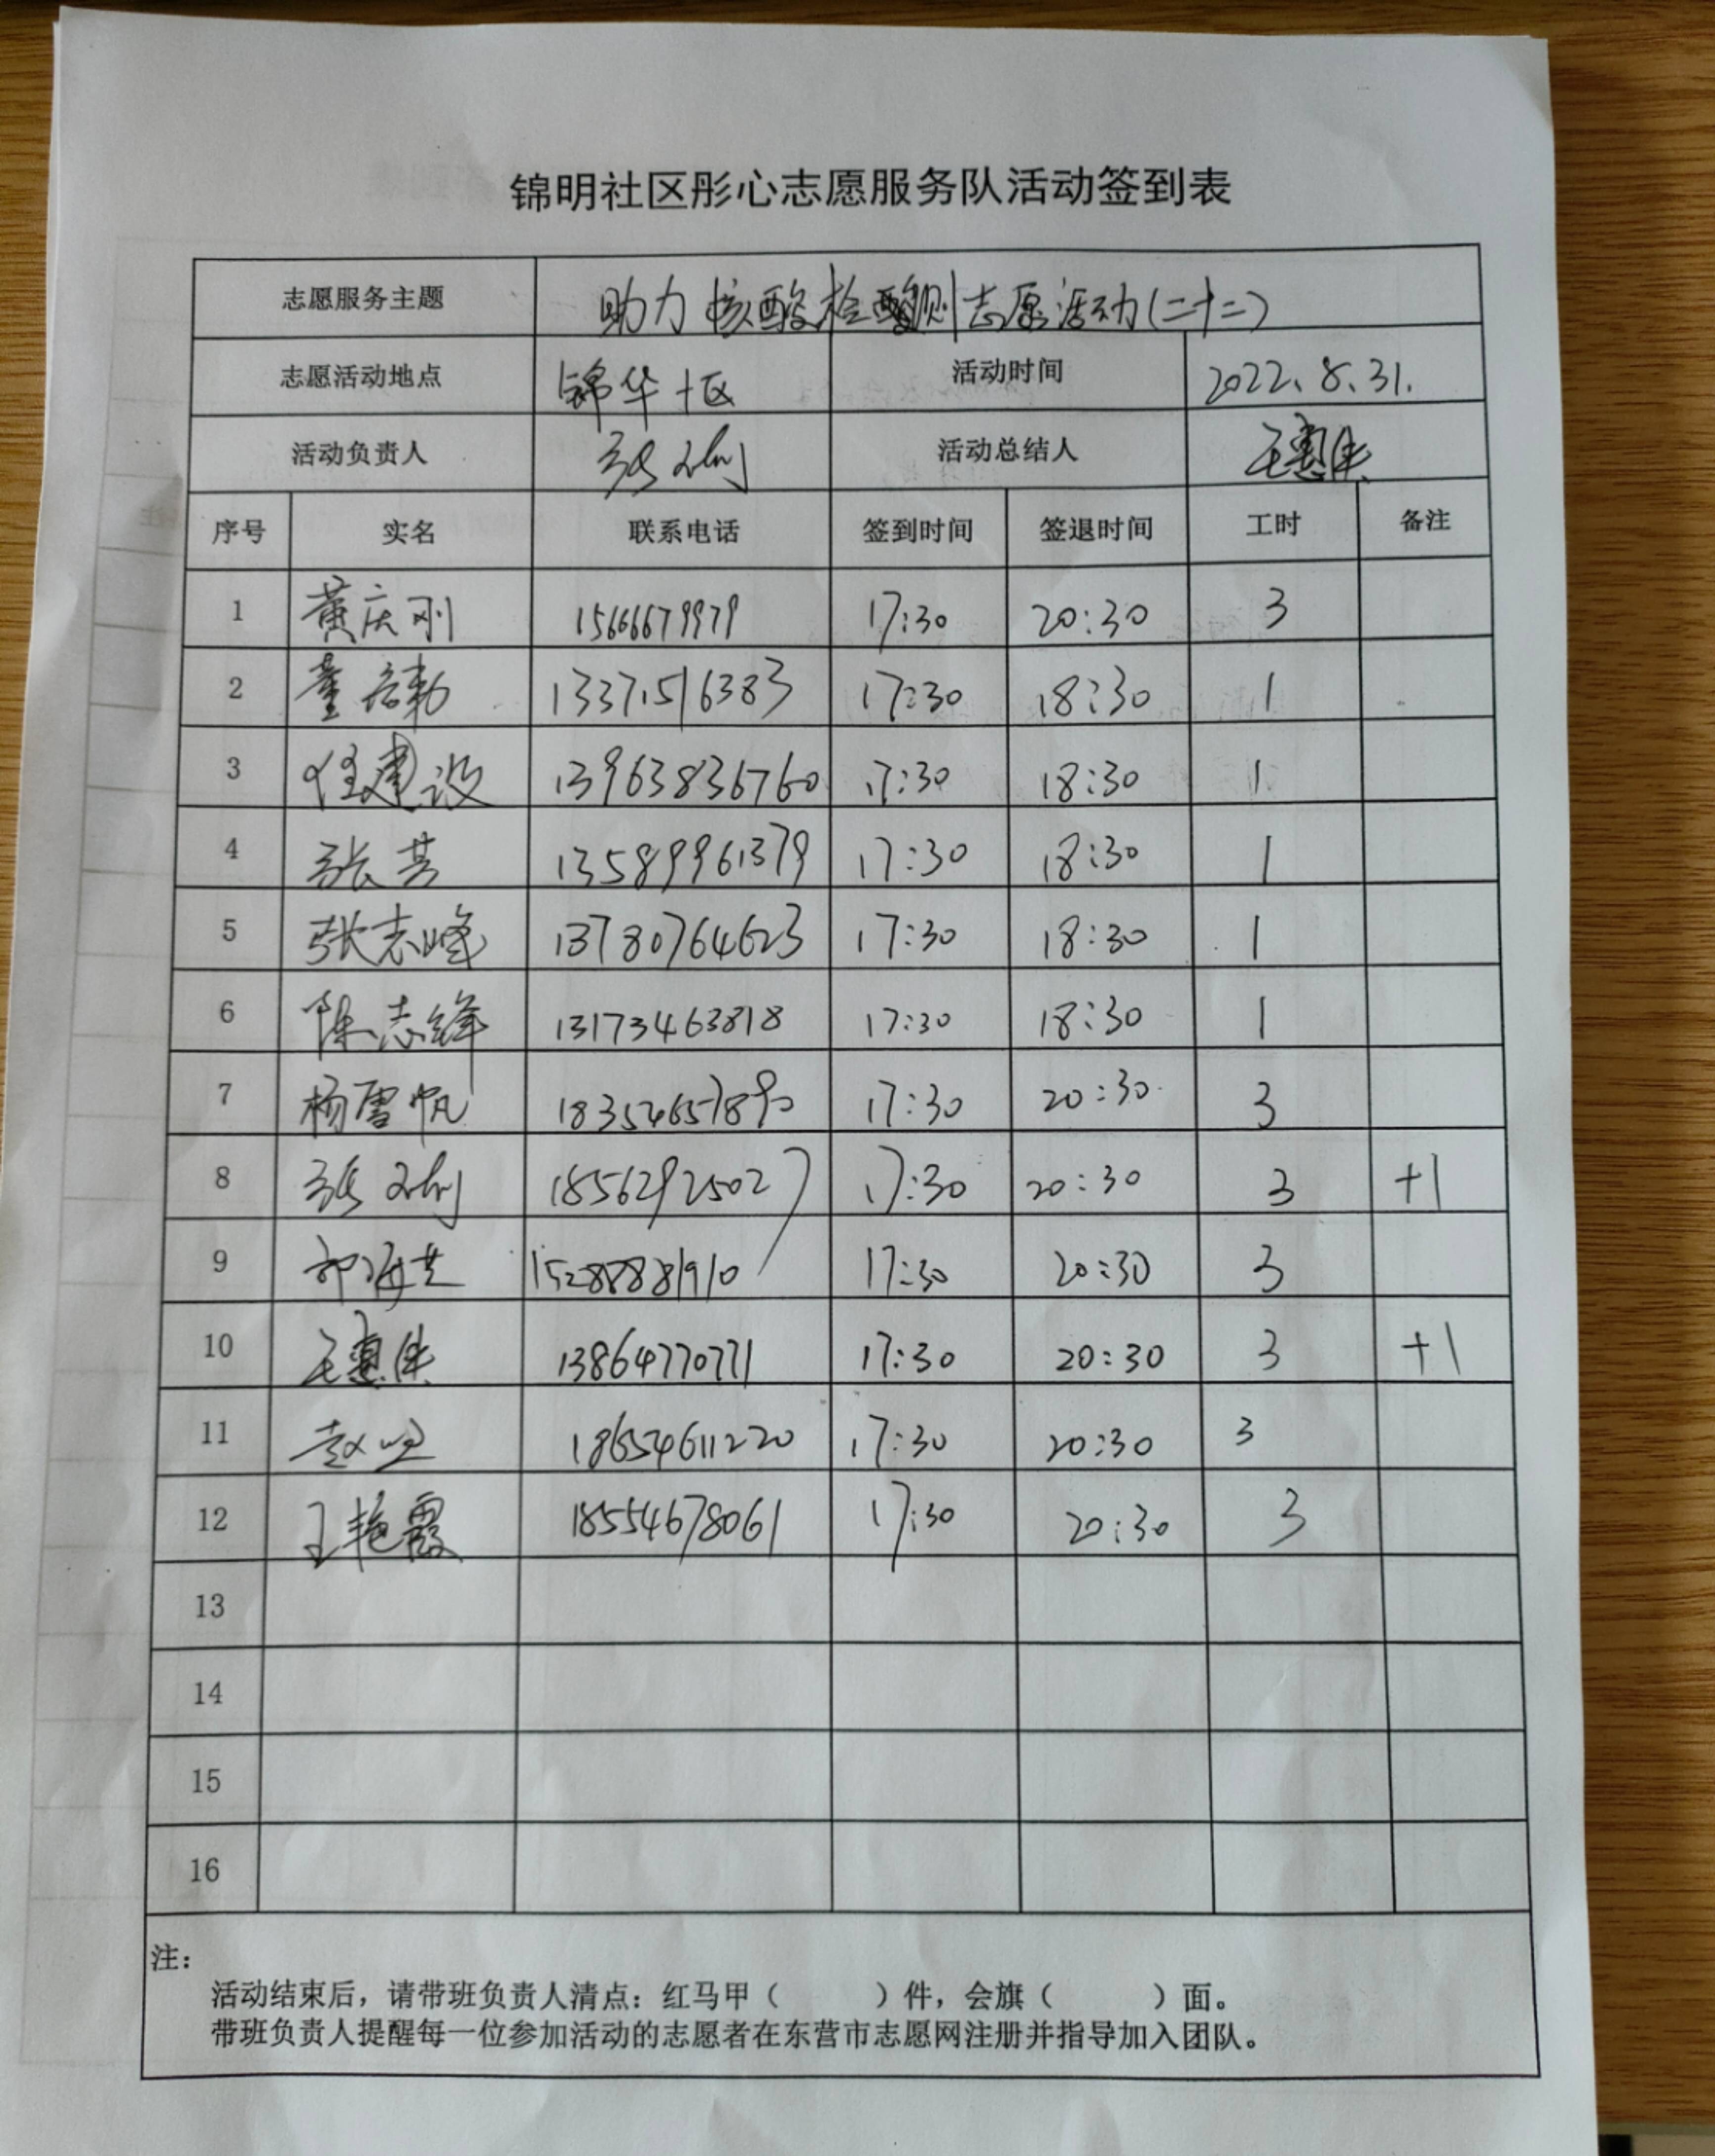 锦明社区彤心志愿服务队活动签到表
志愿服务主题 助力核酸检测志愿活动(二十二)
志愿活动地点 锦华十区 活动时间 2022.8.31.
活动负责人 张 活动总结人 王惠佳
序号 实名 联系电话 签到时间 签退时间 工时 备注
1 黄庆刚 15666679979 17:30 20:30 3
2 董 13371516383 17:30 18:30 1
3 任建设 13963836760 17:30 18:30 1
4 张芸 13589961379 17:30 18:30 1
5 张志峰 13780764623 17:30 18:30 1
6 陈志锋 13173463818 17:30 18:30 1
7 杨雪帆 18354657890 17:30 20:30 3
8 张 18562925027 17:30 20:30 3 +1
9 郭海芸 15288881910 17:30 20:30 3
10 王惠佳 13864770771 17:30 20:30 3 +1
11 赵 18654611220 17:30 20:30 3
12 王艳霞 18554678061 17:30 20:30 3
13
14
15
16
注:
活动结束后，请带班负责人清点：红马甲（ ）件，会旗（ ）面。
带班负责人提醒每一位参加活动的志愿者在东营市志愿网注册并指导加入团队。